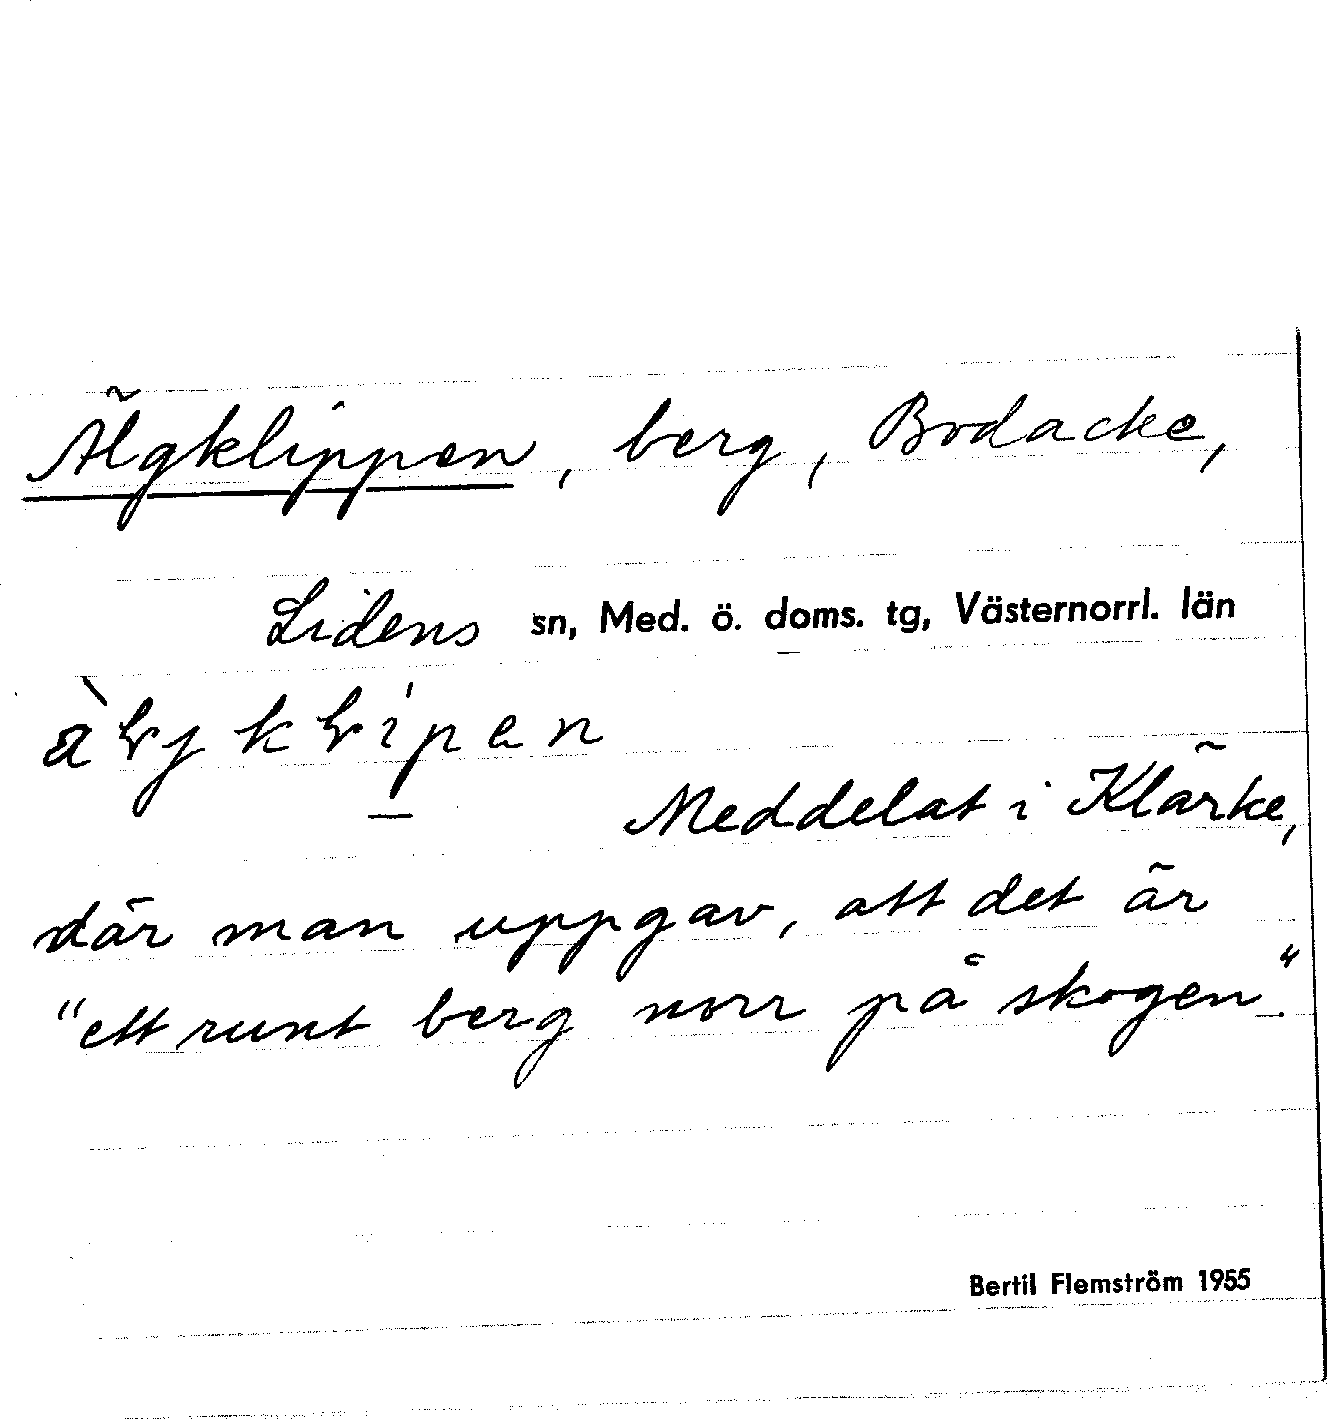 Älgklippen, berg, Bodacke,
Lidens sn, Med. ö. doms. tg, Västernorrl. län
Meddelat i Klärke,
där man uppgav, att det är
"ett runt berg norr på skogen".
Bertil Flemström 1955